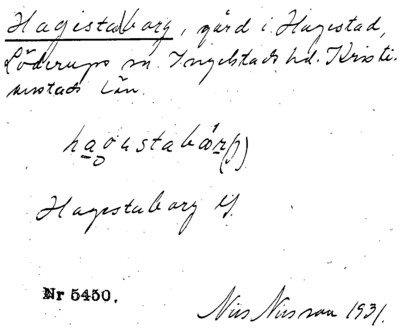 Hagestaborg, gård i Hagestad,
Löderups sn. Ingelstads hd. Kristi-
anstads län.
Hagestaborg
Nr 5450.
Nils Nilsson 1931.